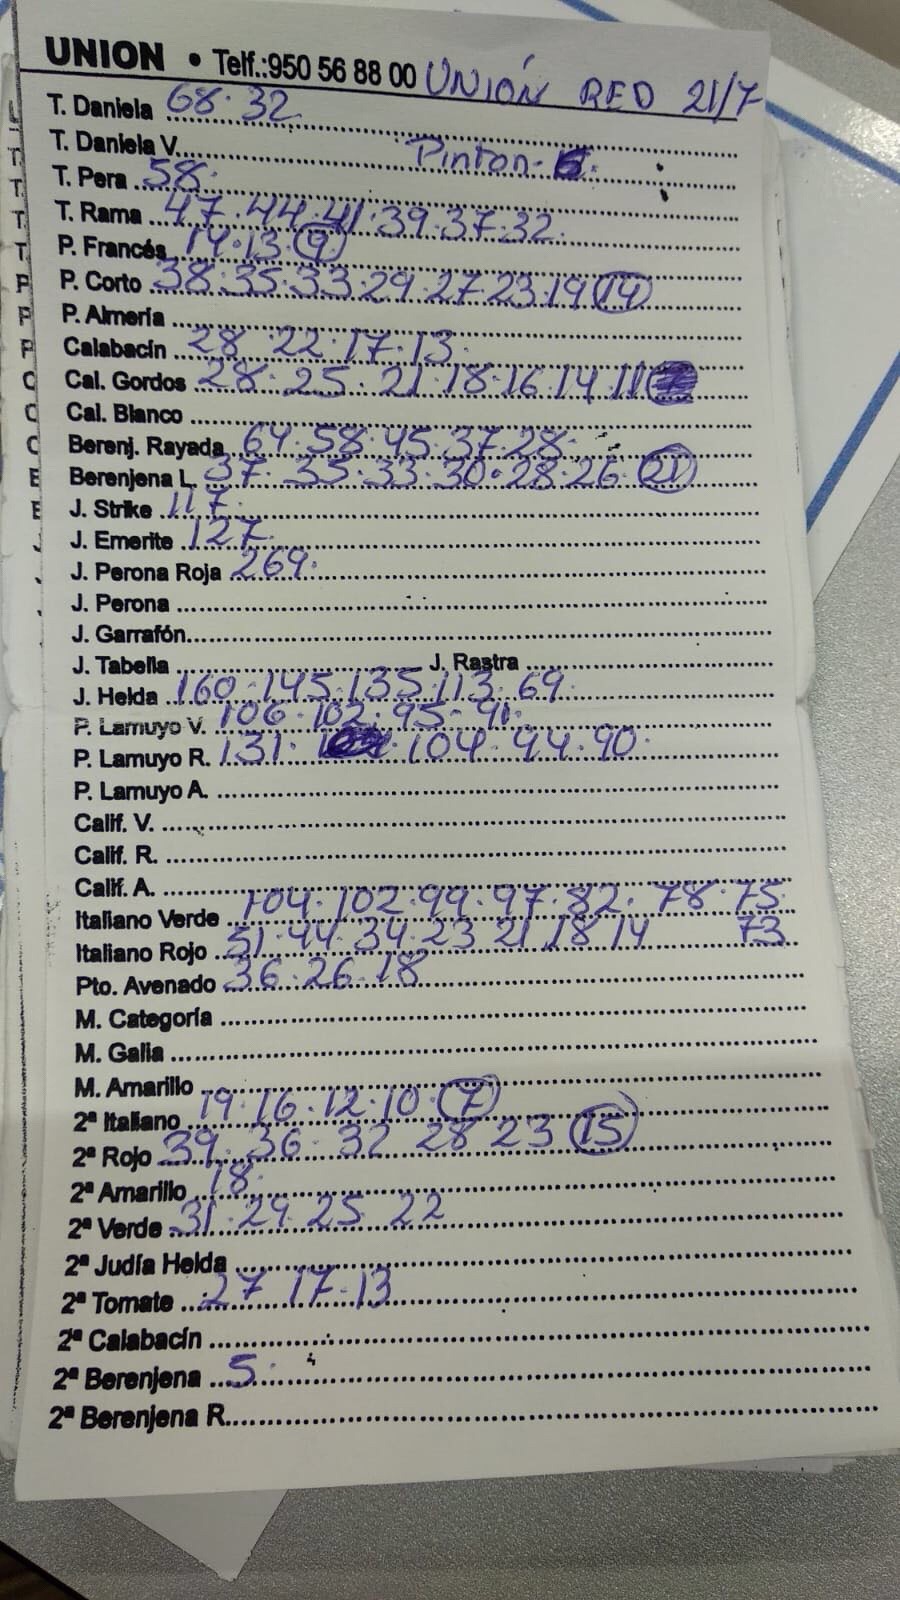 UNION • Telf.:950 56 88 00 UNIÓN RED 21/7
T. Daniela 68. 32
T. Daniela V. Pinton-
T. Pera 58.
T. Rama 47. 44. 41. 39. 37. 32.
P. Francés 14. 13. 9
P. Corto 38. 35. 33. 29. 27. 23. 19 14
P. Almería
Calabacín 28. 22. 17. 13.
Cal. Gordos 28. 25. 21. 18. 16. 14. 11
Cal. Blanco
Berenj. Rayada 64. 58. 45. 37. 28.
Berenjena L. 37. 35. 33. 30. 28. 26. 21
J. Strike 117.
J. Emerite 127.
J. Perona Roja 269.
J. Perona
J. Garrafón
J. Tabella J. Rastra
J. Helda 160. 145. 135. 113. 69.
P. Lamuyo V. 106. 102. 95- 91.
P. Lamuyo R. 131. 104. 94. 90.
P. Lamuyo A.
Calif. V.
Calif. R.
Calif. A.
Italiano Verde 104. 102. 99. 97. 82. 78. 75.
Italiano Rojo 51. 44. 34. 23 21. 18 14 73
Pto. Avenado 36. 26. 18
M. Categoría
M. Galia
M. Amarillo
2ª Italiano 19. 16. 12. 10. 7
2ª Rojo 39. 36. 32 28 23 15
2ª Amarillo 18.
2ª Verde 31. 29. 25. 22
2ª Judía Helda
2ª Tomate 27 17. 13
2ª Calabacín
2ª Berenjena 5.
2ª Berenjena R.